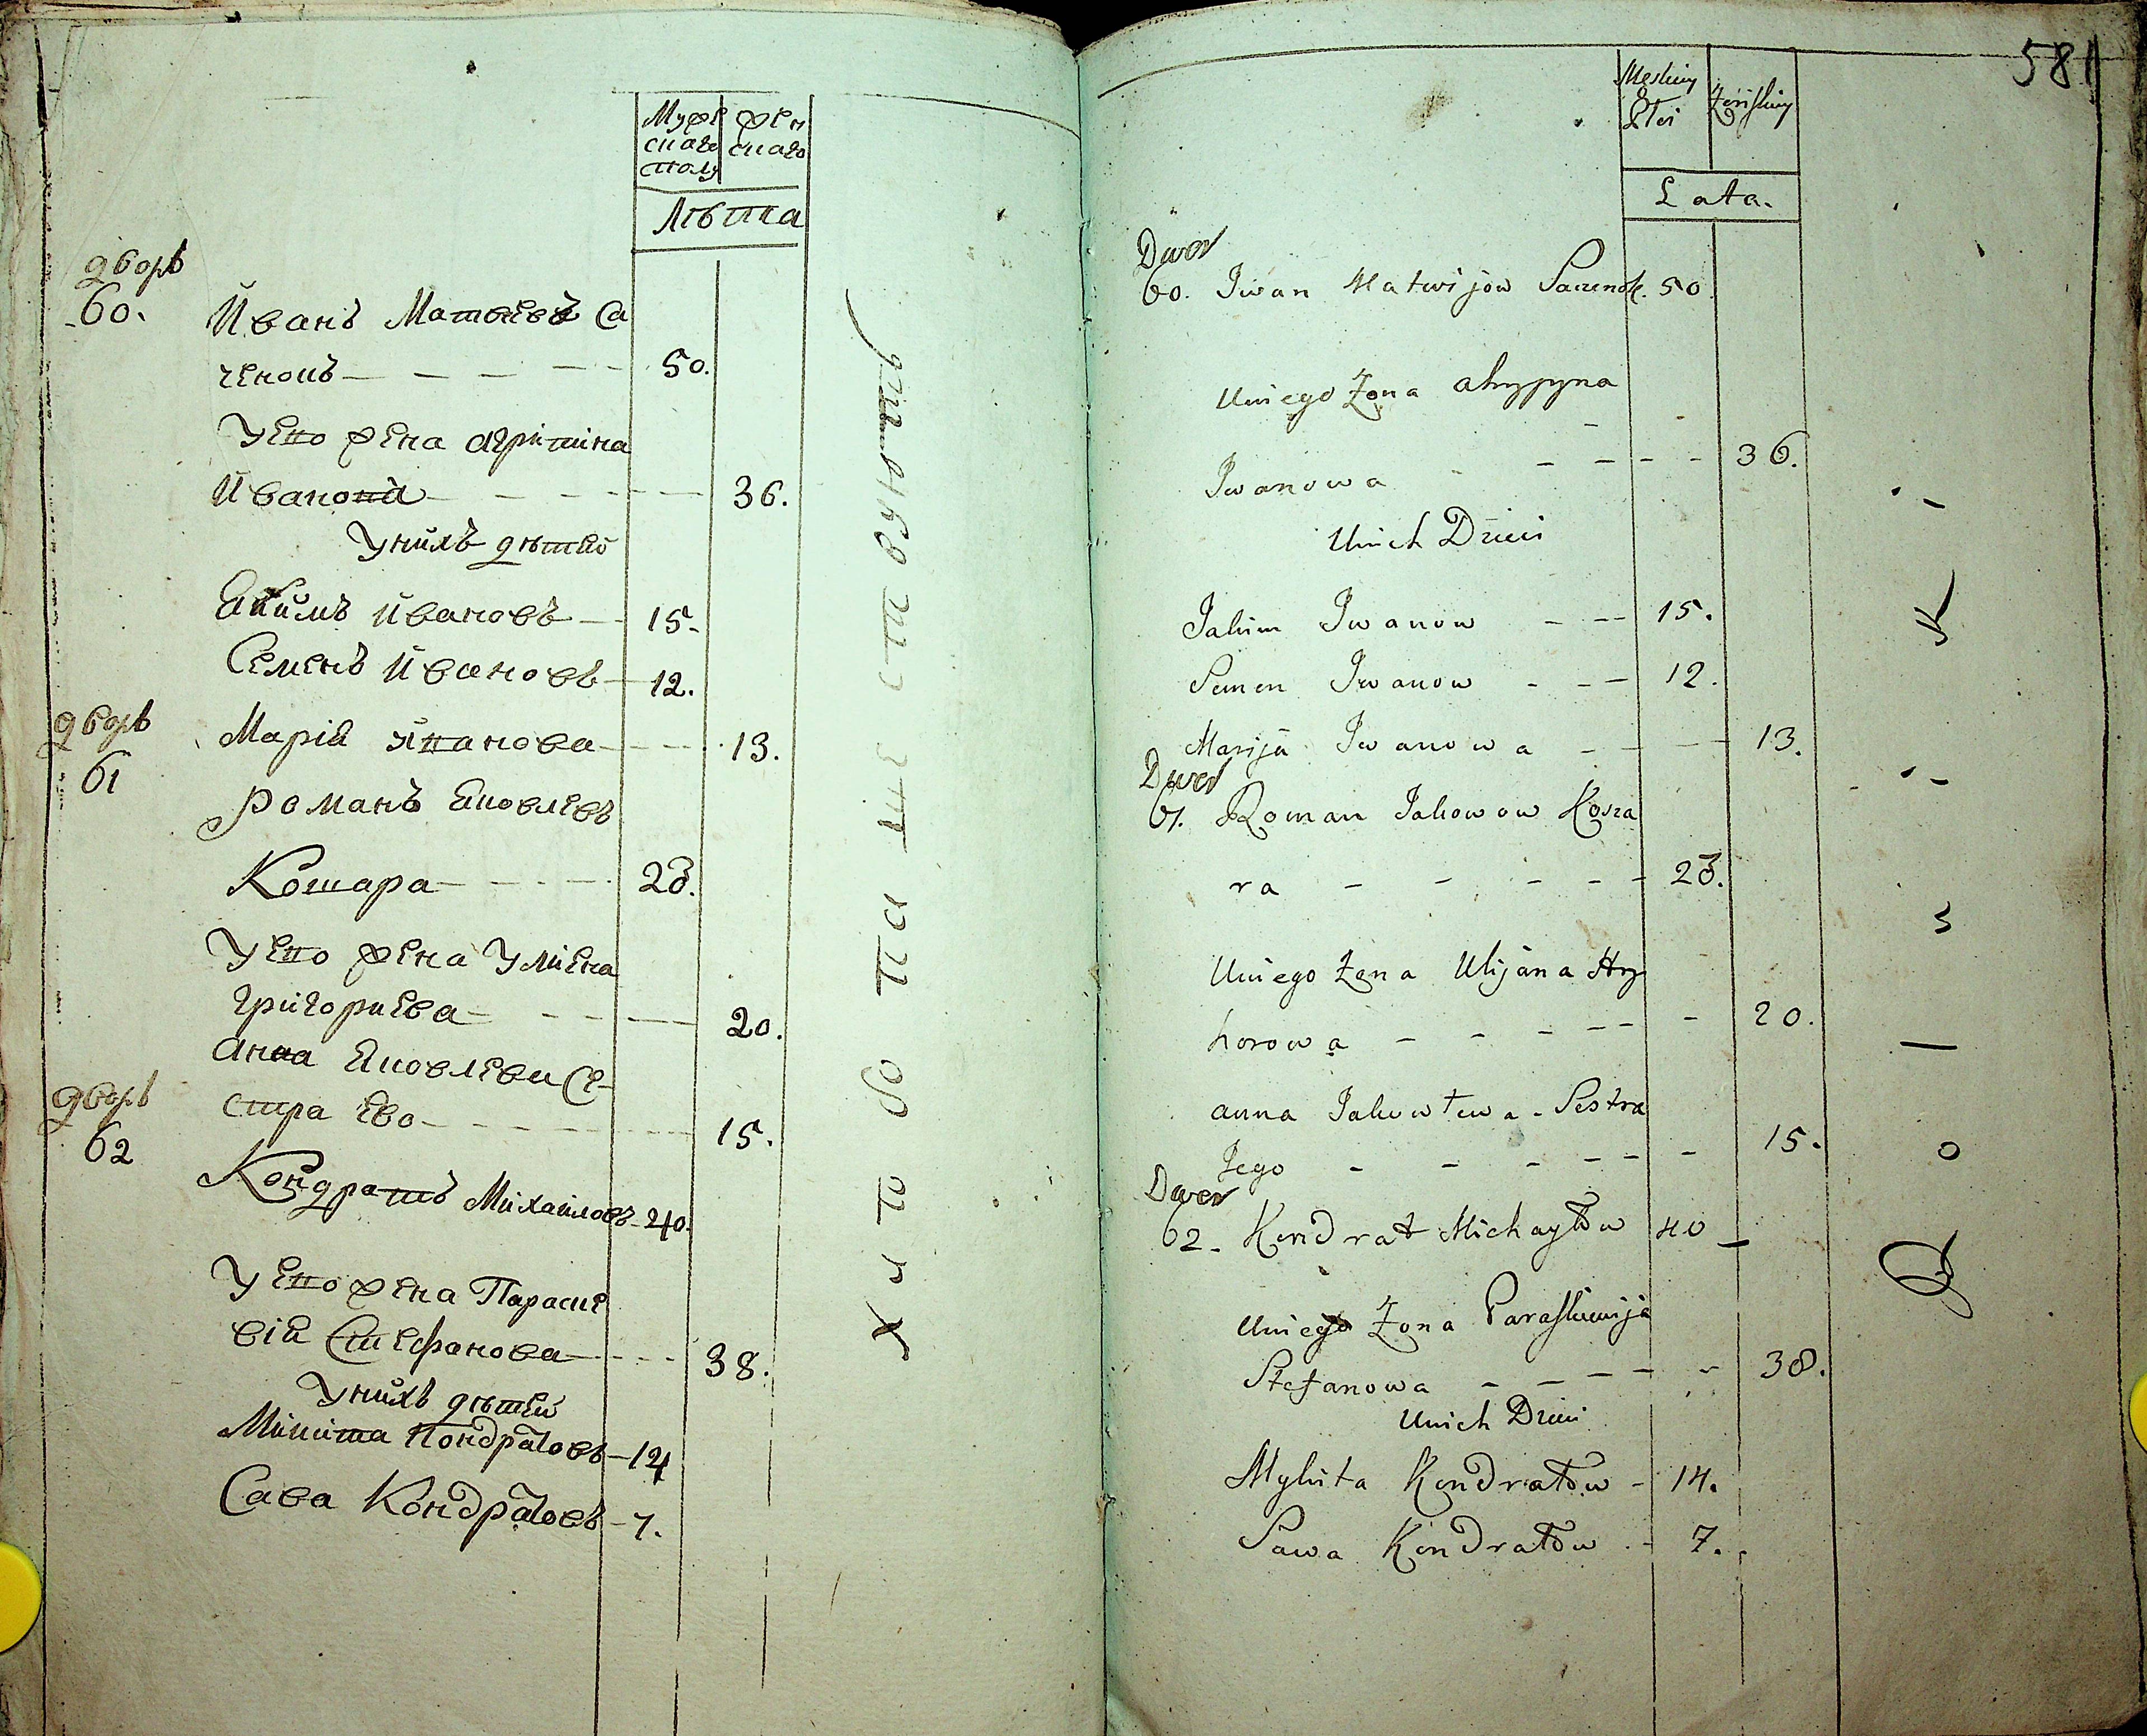 Мужескаго полу
Женскаго
Лѣта
дворъ
60.
Иванъ Матвѣевъ Са
ченокъ 50.
У его жена Агрипина
Иванова 36.
У нихъ дѣтей
Якимъ Ивановъ 15.
Семенъ Ивановъ 12.
Марія Иванова 13.
дворъ
61
Романъ Яковлевъ
Кошара 23.
У его жена Улиена
Григориева 20.
Анна Яковлева Се
стра Ево 15.
дворъ
62
Кондратъ Михайловъ 40.
У его жена Параске
вія Стефанова 38.
У нихъ дѣтей
Микита Кондратовъ 14
Сава Кондратовъ 7.
581
Męskiey
Płci
Żeńskiey
Lata.
Dwor
60. Iwan Matwijow Saczenok. 50.
U niego Żona Ahrypyna
Iwanowa 36.
U nich Dzieci
Jakim Iwanow 15.
Semen Iwanow 12.
Marija Iwanowa 13.
Dwor
61. Roman Jakowow Kosza
ra 23.
U niego Żona Ulijana Hry
horowa 20.
Anna Jakowlewa Sestra
Jego 15.
Dwor
62. Kondrat Michayłow 40
U niego Żona Paraskiewija
Stefanowa 38.
U nich Dzieci
Mykita Kondratow 14.
Sawa Kondratow 7.